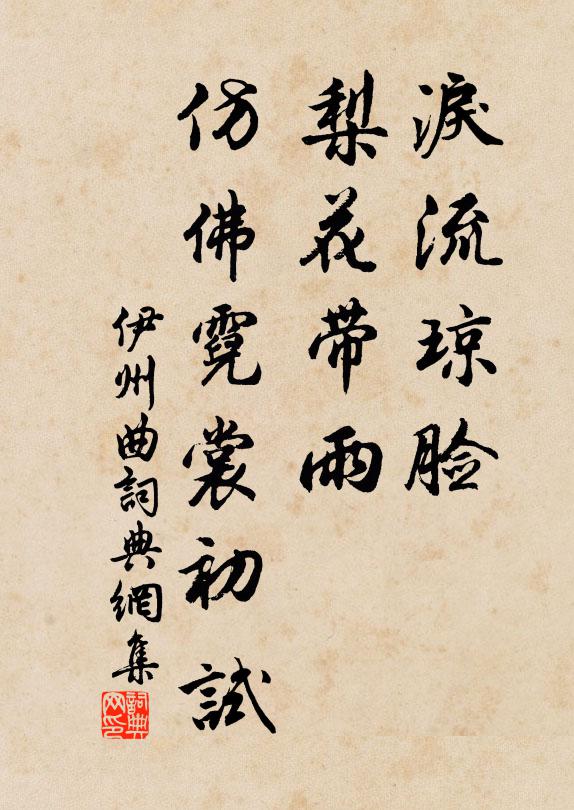 淚流琼脸
梨花带雨
仿佛霓裳初試
伊州曲詞典網集
詞典网印